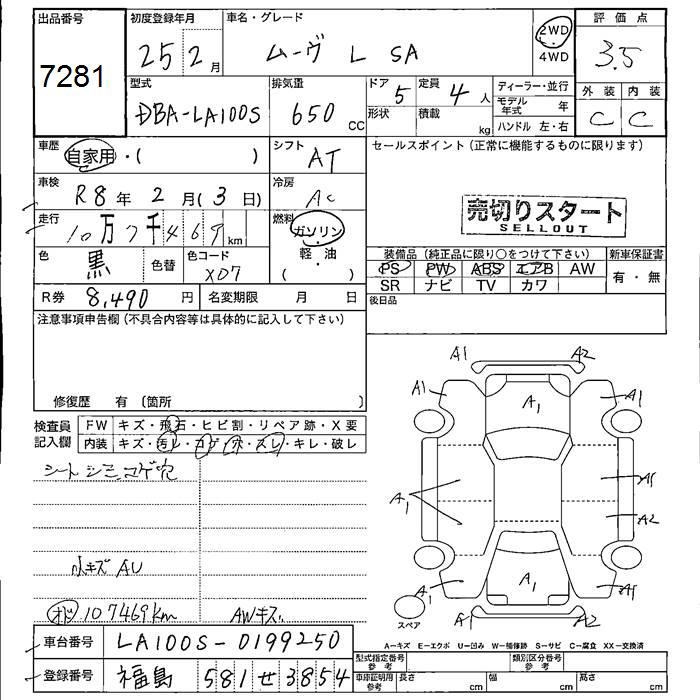 出品番号
7281
初度登録年月
25 2月
車名・グレード
ムーヴ L SA
2WD
4WD
評価点
3.5
外装 内装
C C
型式
DBA-LA100S
排気量
650 CC
ドア 5
形状
定員 4人
積載 kg
ディーラー・並行
モデル年式 年
ハンドル 左・右
車歴
自家用・( )
シフト
AT
車検
R8年 2月(3日)
冷房
AC
走行
10万7千469km
燃料
ガソリン
軽・油
( )
色
黒
色替
色コード
X07
R券 8,490円
名変期限 月 日
セールスポイント(正常に機能するものに限ります)
売切りスタート
SELLOUT
装備品(純正品に限り○をつけて下さい)
PS PW ABS エアB AW
SR ナビ TV カワ
新車保証書
有・無
後日品
注意事項申告欄(不具合内容等は具体的に記入して下さい)
修復歴 有(箇所 )
検査員記入欄
FW キズ・飛石・ヒビ割・リペア跡・X要
内装 キズ・汚レ・コゲ・穴・スレ・キレ・破レ
シート シミ コゲ穴
小キズ AU
オド 107469km
AWキズ
A1 A2
A1 A1 A1
A1 A1
A2
A1 A1 A1
A1 A2
スペア
車台番号 LA100S-0199250
登録番号 福島 581 せ 3854
A-キズ E-エクボ U-凹み W-補修跡 S-サビ C-腐食 XX-交換済
型式指定番号 参考
類別区分番号 参考
車庫証明用 参考
長さ cm 幅 cm 高さ cm